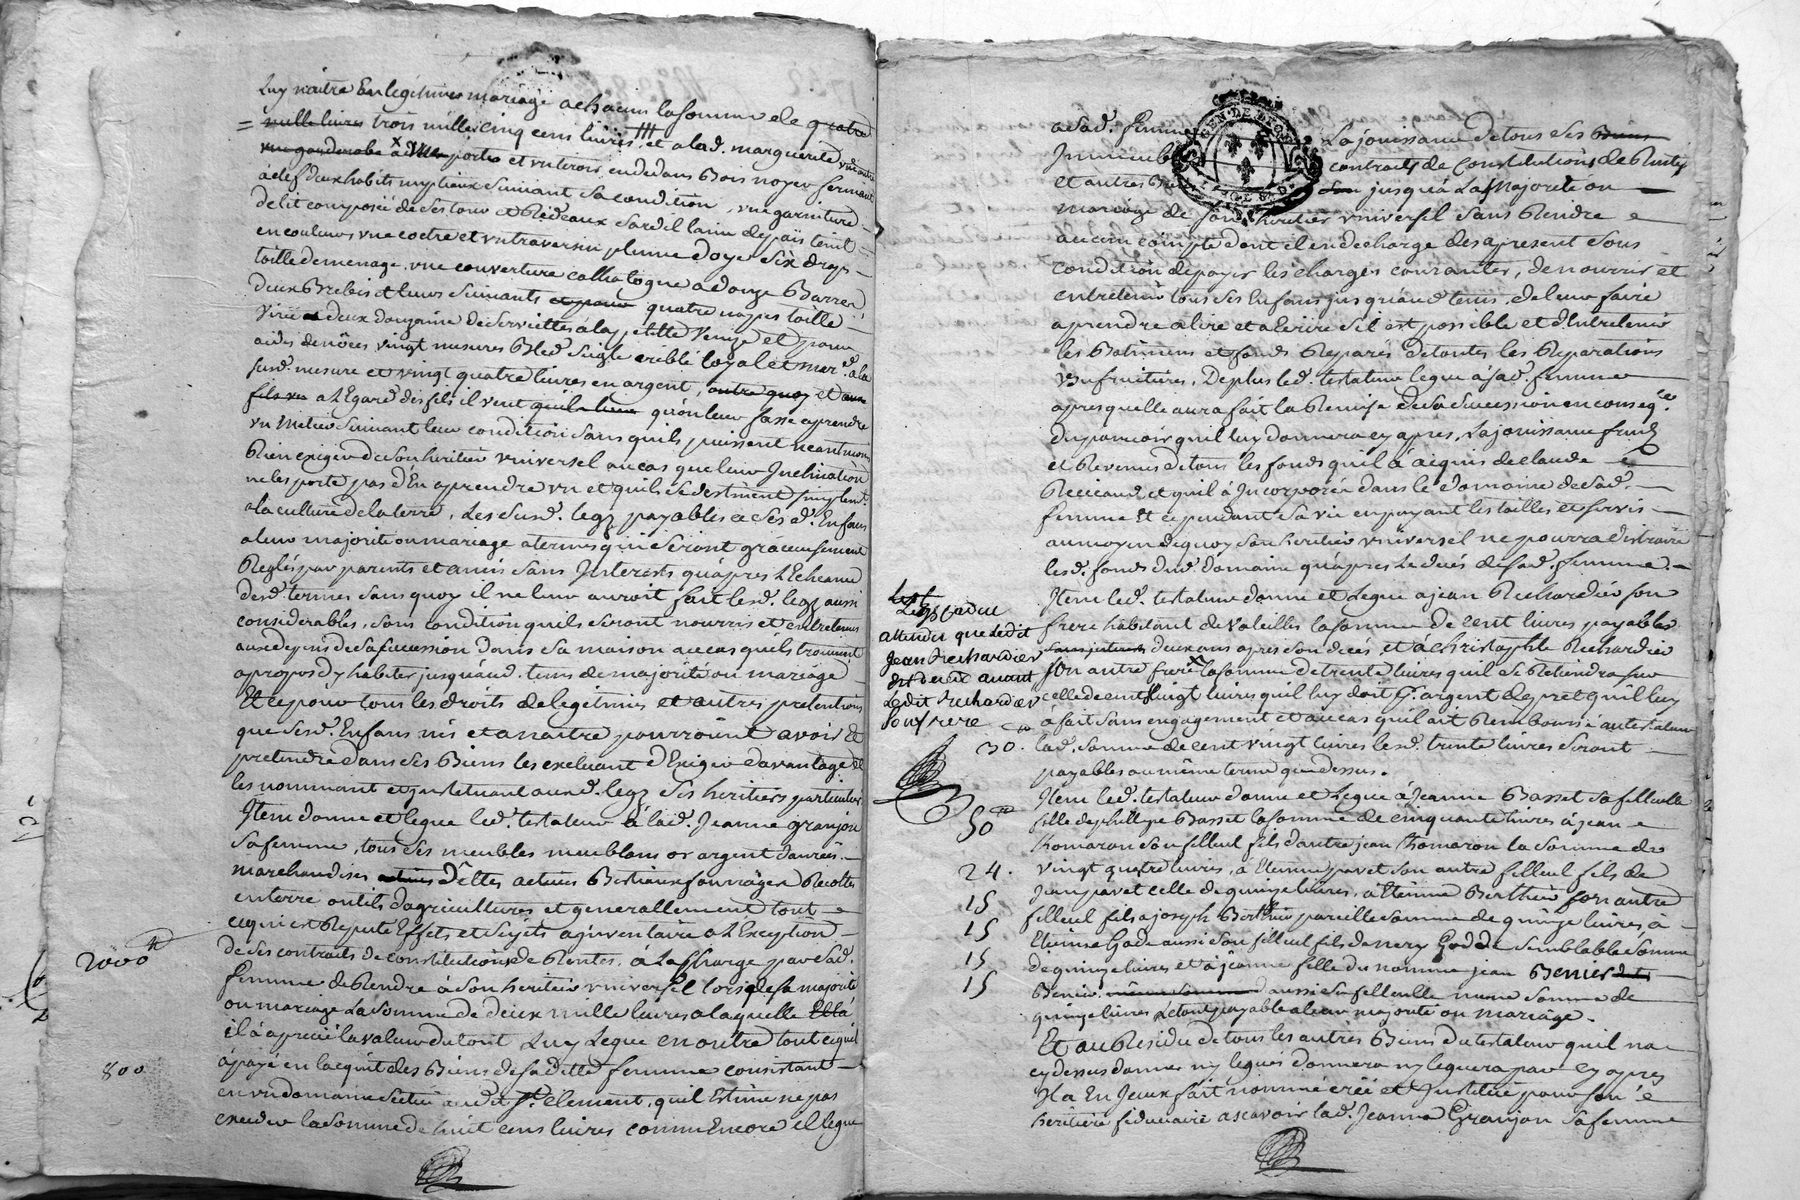 Luy naitre En legitime mariage a chacun la somme de quatre
mille livres trois mille cinq cens livres, et a lad. marguerite
une garderobe a deux portes et un tiroir en dedans Bois noyer fermant
à clef deux habits nuptiaux suivant sa condition, une garniture
de lit composée de ses tour et Rideaux sardil laine de païs teint
en couleurs une coetre et un traversin plume d'oye Six draps
toille de menage, une couverture cathalogne a douze Barres
deux Brebis et leurs suivants et pour quatre nappes toille
deux douzaine de Serviettes à la petitte Venize et pour
aides de nôces vingt mesures Bled Seigle criblé loyal et mar.d a la
susd. mesure et vingt quatre livres en argent, outre quoy et
a l'Egard des fils il veut qu'il leur qu'on leur fasse aprendre
un métier suivant leur condition sans quils puissent neantmoins
Rien exiger de Son heritier universel au cas que leur Inclination
ne les porte pas d'En aprendre un et quils se destinent simplemt.
a la culture de la terre, Les Susd. legz payables a Ses d. Enfans
a leur majorité ou mariage a termes qui seront gracieusement
Reglés par parents et amis sans Interests qu'apres l'Echeance
desd. termes sans quoy il ne leur auroit fait lesd. legz aussi
considerables, sous condition quils seront nourris et entretenus
aux depens de sa succession dans sa maison au cas quils trouvent
apropos d'y habiter jusqu'aud. tems de majorité ou mariage
Et ce pour tous les droits de legitimes et autres pretentions
que Sesd. Enfans nés et a naitre pourroint avoir et
pretendre dans ses Biens les excluant d'Exiger davantage et
les nommant et instituant auxd. legz Ses heritiers particuliers
Item donne et legue led. testateur à lad. Jeanne granjon
Sa femme, tous Ses meubles meublans or argent danrées
marchandises dêttes actives Bestiaux fourrages Recoltes
en terre outils d'agricultures et generallement tout
ce qui est Reputé Effets et Sujets à inventaire a l'Exception
2000 ₶ de ses contrats de constitutions de Rentes, à La charge par sad.
femme de Rendre à Son heritier universel lors de sa majorité
ou mariage La Somme de deux mille livres a laquelle
il à aprecié la valeur du tout Luy Legue en outre tout ce qu'il
800 à payé en l'acquit des Biens de sa dette femme consistant
en un domaine situé aud. St. clement, quil Estime ne pas
exceder la Somme de huit cens livres comme Encore il legue
GEN. DE
a Sad. femme La jouissance de tous Ses
Immeubles contrats de Constitutions de Rentes
et autres jusqu'à La Majorité ou
mariage de son heritier universel sans Rendre
aucun compte dont il en decharge des apresent sous
condition de payer les charges courantes, de nourrir et
entretenir tous ses Enfans jusqu'aud. tems, de leur faire
aprendre a lire et a Ecrire s'il est possible et d'Entretenir
les Batimens et fonds Reparés de toutes les Reparations
usufruitures, De plus led. testateur legue à sad. femme
apres quelle aura fait la Remise de Sa Succession en conseq.ce
du pouvoir quil luy donnera cy apres, La jouissance fruits
et Revenus de tous les fonds quil à aquis de claude
et quil à Incorporés dans le domaine de Sad.
femme et ce pendant Sa vie en payant les tailles et servis
au moyen de quoy Son heritier universel ne pourra distraire
lesd. fonds dud. domaine qu'apres Le decès de Sad. femme.
Item led. testateur donne et Legue a jean Richardier Son
frere habitant de Valeilles la somme de cent livres payables
sans interest deux ans apres son decés et à christophle Richardier
Son autre frere la somme de trente livres quil se Retiendra sur
celle de cent vingt livres quil luy doit p.r argent de pret quil luy
à fait sans engagement et au cas quil ait Remboursé au testateur
lad. Somme de cent vingt livres lesd. trente livres Seront
payables au même terme que dessus.
Legs caduc
attendu que ledit
Jean Richardier
est decedé avant
Ledit Richardier
son frere
30 ₶
Item led. testateur donne et Legue à Jeanne Basset Sa filleulle
50 ₶ fille de phillype Basset la somme de cinquante livres à jean
Thomaron Son filleul fils d'autre jean Thomaron la Somme de
24. vingt quatre livres, à Etienne pavet Son autre filleul fils de
15 Jean pavet celle de quinze livres, à Etienne Berthier son autre
15 filleul fils a joseph Berthier pareille Somme de quinze livres à
Etienne Gode aussi Son filleul fils d'annery Godde Semblable Somme
15 de quinze livres et à jeanne fille du nommé jean Benier
15 Benier aussi Sa filleulle meme somme de
quinze livres Le tout payable a leur majorité ou mariage.
Et au Residu de tous les autres Biens du testateur quil n'a
cy dessus donnés ny legués donnera ny leguera par Cy apres
Il a En Iceux fait nommé créé et Institué pour Son
heritiere fiduciaire ascavoir lad. Jeanne Granjon Sa femme